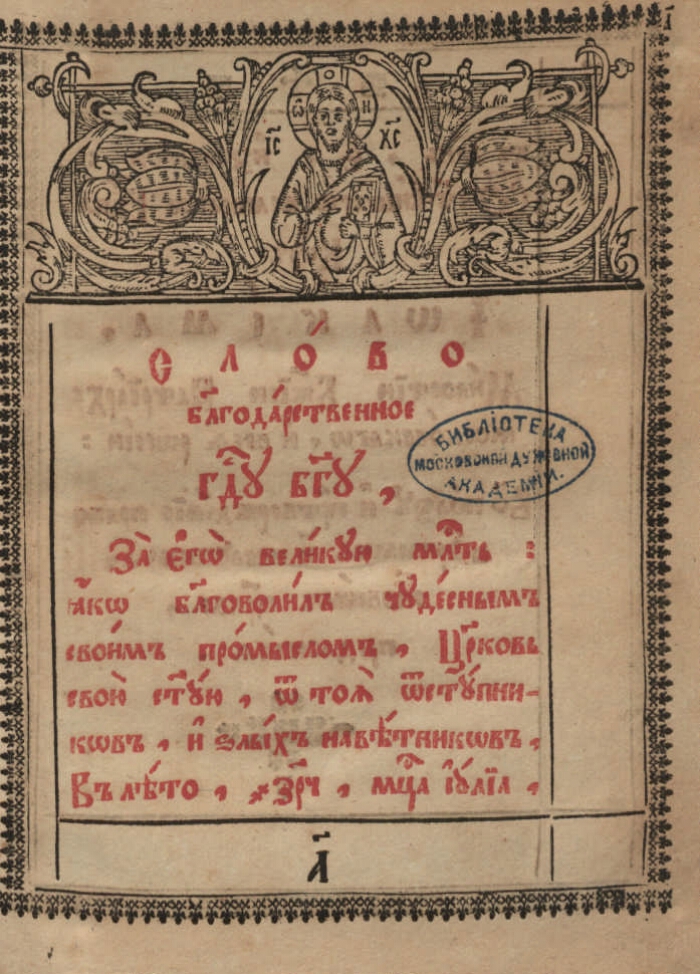 ІС ХС
СЛО́ВО
бл҃года́рственное
гдⷭ҇ꙋ бг҃ꙋ,
За̀ є҆гѡ̀ вели́кꙋю млⷭ҇ть :
ꙗ҆́кѡ бл҃говоли́лъ чꙋде́снымъ
свои́мъ про́мысломъ, Цр҃ковь
свою̀ ст҃ꙋ́ю, ѿ тоѧ̀ ѿстꙋ́пни-
кѡвъ, и҆ ѕлы́хъ навѣ́тникѡвъ,
Въ лѣ́то, ҂зр҃ч, мцⷭ҇а і҆ꙋ́лїа,
а҃
БИБЛІОТЕКА
МОСКОВСКОЙ ДУХОВНОЙ
АКАДЕМІИ.